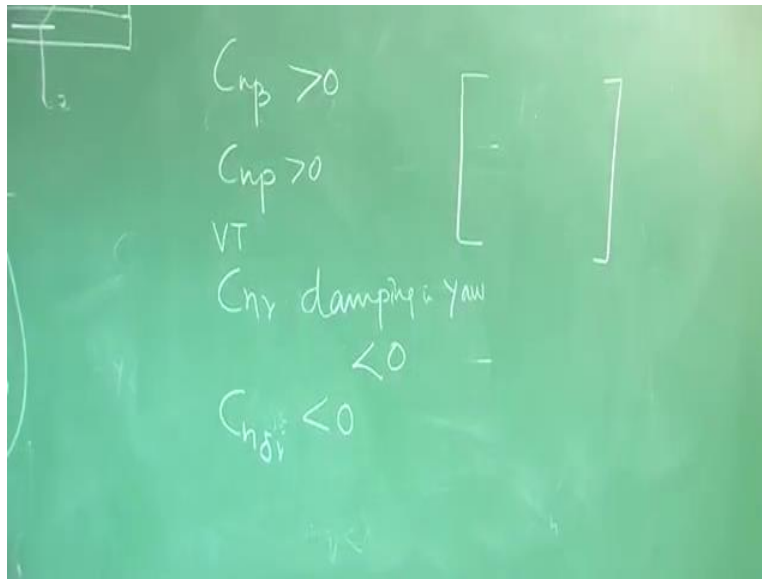 C_{nβ} > 0
C_{np} > 0
VT
C_{nr} damping in yaw
< 0 -
C_{nδr} < 0